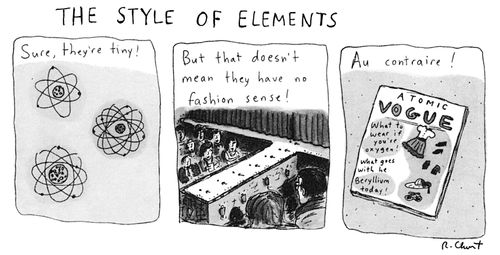 THE STYLE OF ELEMENTS
Sure, they're tiny!
But that doesn't
mean they have no
fashion sense!
Au contraire!
ATOMIC
VOGUE
What to
wear if
you're
oxygen!
What goes
with he
Beryllium
today!
R. Chast